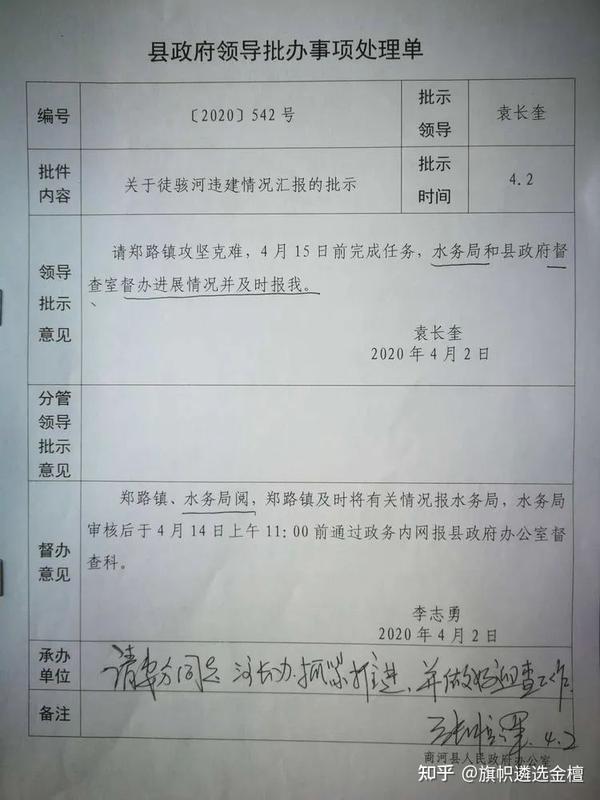 县政府领导批办事项处理单
编号
〔2020〕542 号
批示
领导
袁长奎
批件
内容
关于徒骇河违建情况汇报的批示
批示
时间
4.2
领导
批示
意见
请郑路镇攻坚克难，4 月 15 日前完成任务，水务局和县政府督
查室督办进展情况并及时报我。
袁长奎
2020 年 4 月 2 日
分管
领导
批示
意见
督办
意见
郑路镇、水务局阅，郑路镇及时将有关情况报水务局，水务局
审核后于 4 月 14 日上午 11：00 前通过政务内网报县政府办公室督
查科。
李志勇
2020 年 4 月 2 日
承办
单位
请 同志 河长办 抓紧推进，并做好迎查工作
备注
4.2
商河县人民政府办公室
知乎 @旗帜遴选金檀